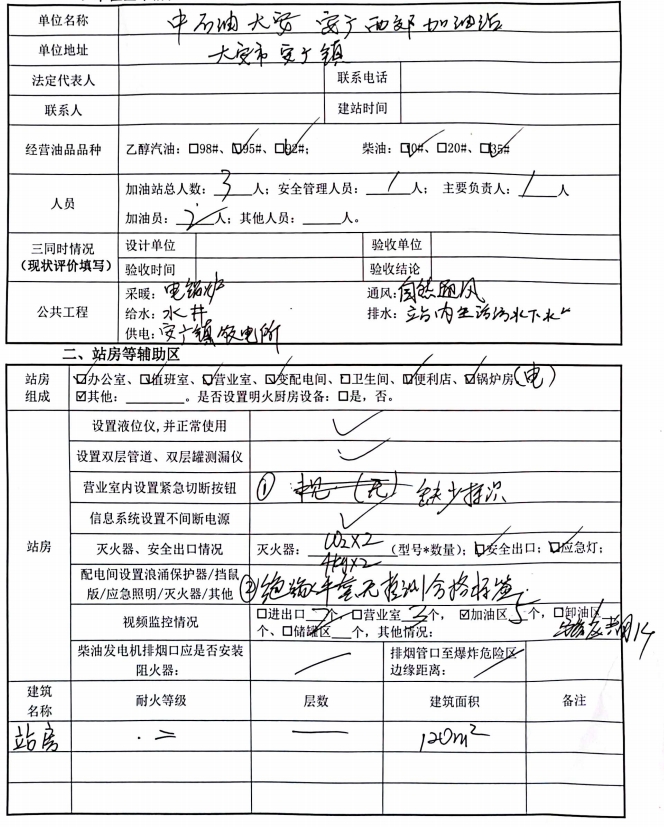 单位名称 中石油大安安广西郊加油站
单位地址 大安市安广镇
法定代表人 联系电话
联系人 建站时间
经营油品品种 乙醇汽油：□98#、☑95#、☑92#； 柴油：☑0#、□20#、☑35#
人员 加油站总人数：3人；安全管理人员：1人； 主要负责人：1人
加油员：2人；其他人员：____人。
三同时情况（现状评价填写） 设计单位 验收单位
验收时间 验收结论
公共工程 采暖：电锅炉 通风：自然通风
给水：水井 排水：站内生活污水下水
供电：安广镇供电所
二、站房等辅助区
站房组成 ☑办公室、☑值班室、☑营业室、☑变配电间、□卫生间、☑便利店、☑锅炉房（电）
☑其他：______。是否设置明火厨房设备：□是，否。
站房 设置液位仪,并正常使用 ✓
设置双层管道、双层罐测漏仪 ✓
营业室内设置紧急切断按钮 ① 缺少标识
信息系统设置不间断电源 ✓
灭火器、安全出口情况 灭火器：CO2×2 4kg×2（型号*数量）；☑安全出口；☑应急灯；
配电间设置浪涌保护器/挡鼠版/应急照明/灭火器/其他 ② 绝缘手套无检测合格标签
视频监控情况 □进出口2个，□营业室3个，☑加油区5个，□卸油区
个、□储罐区__个，其他情况：
柴油发电机排烟口应是否安装阻火器： 排烟管口至爆炸危险区边缘距离：
建筑名称 耐火等级 层数 建筑面积 备注
站房 二 一 120m²